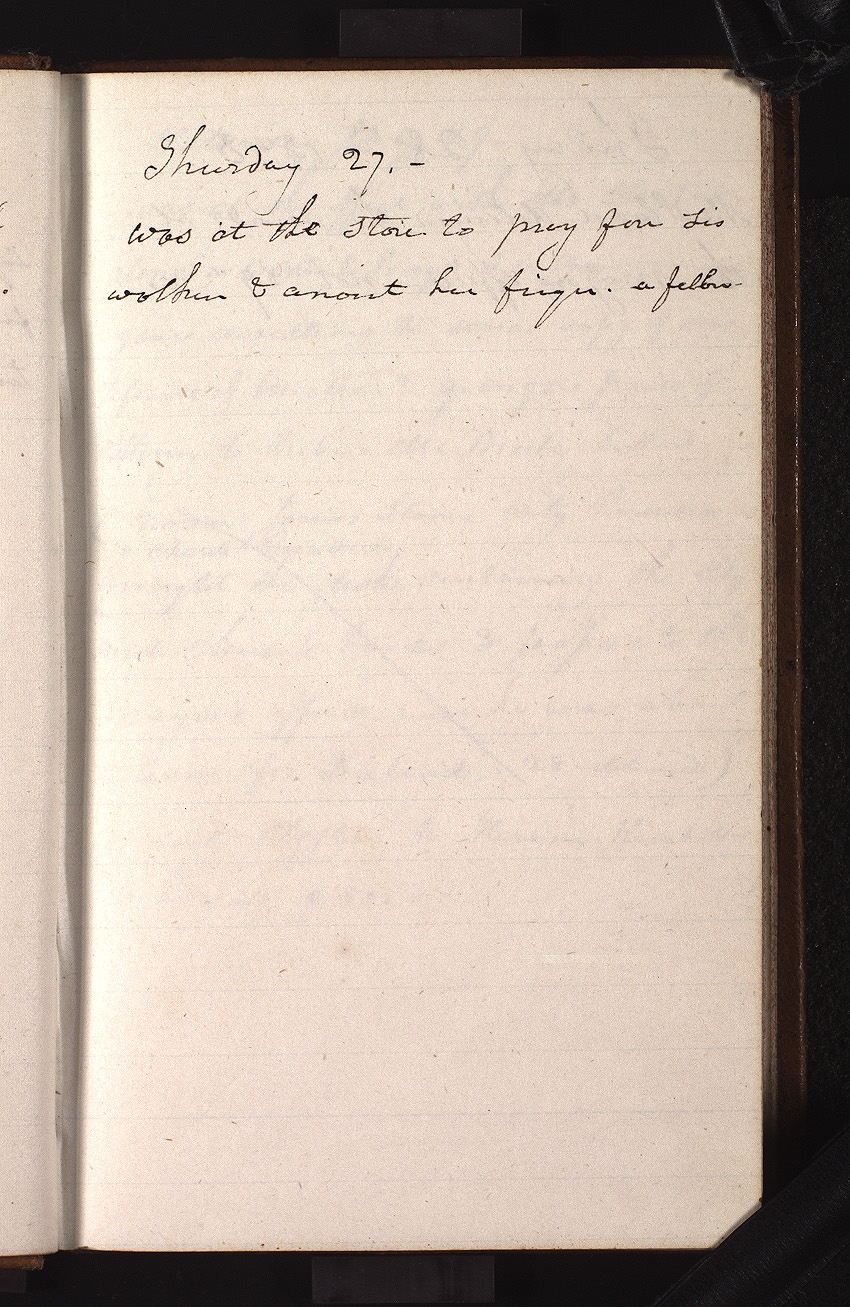 Thursday 27. -
was at the store to pray for sis
wolthen & anoint her finger. a fellon